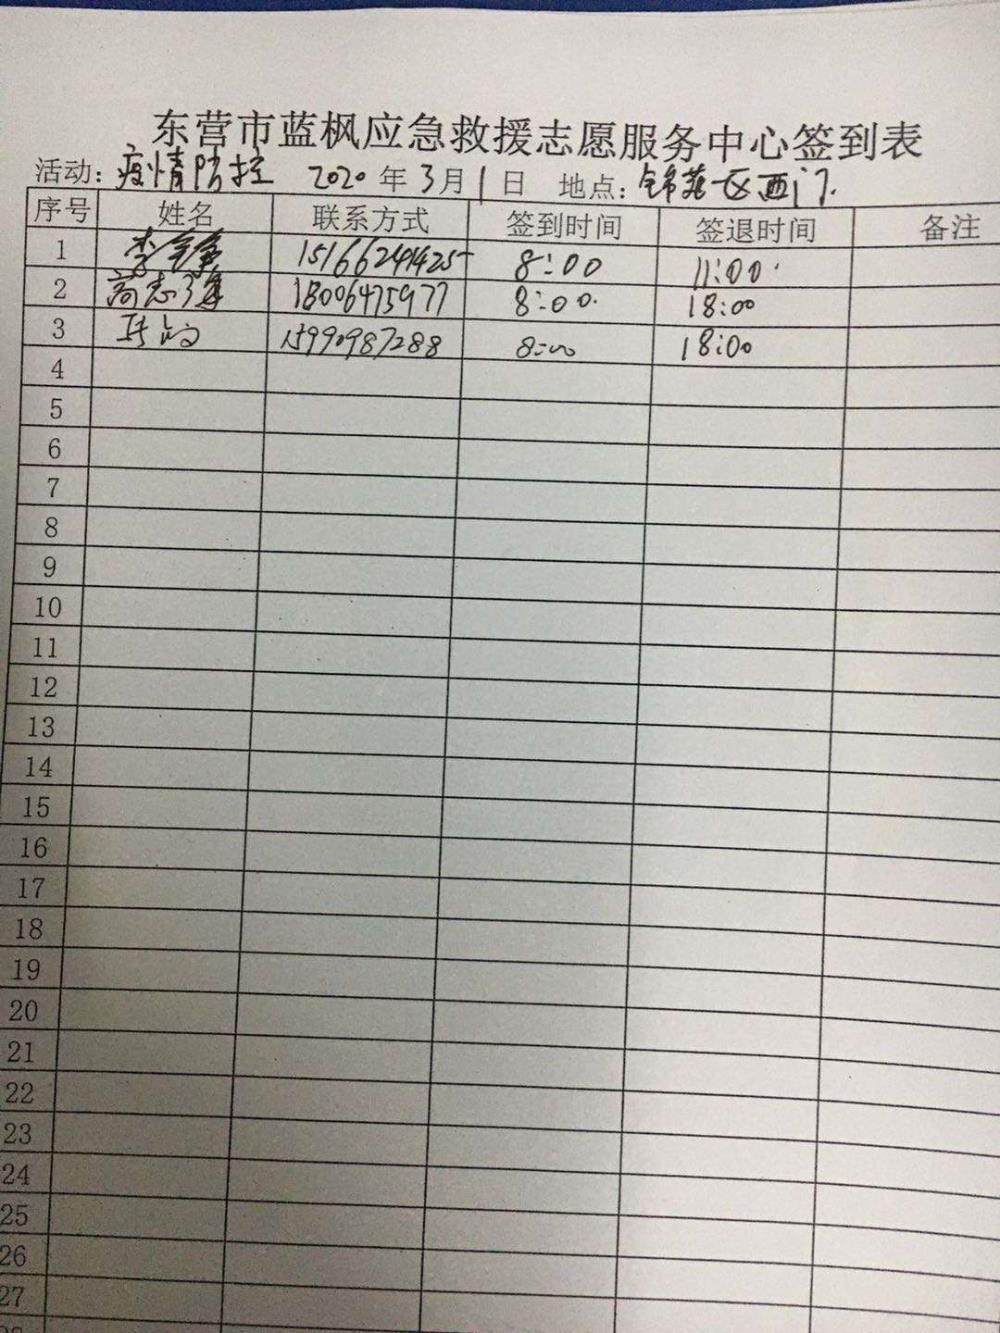 东营市蓝枫应急救援志愿服务中心签到表
活动：疫情防控 2020年3月1日 地点：锦苑 区西门
序号 姓名 联系方式 签到时间 签退时间 备注
1 李 15166241425 8:00 11:00
2 高志 18006475977 8:00 18:00
3 15990987288 8:00 18:00
4
5
6
7
8
9
10
11
12
13
14
15
16
17
18
19
20
21
22
23
24
25
26
27